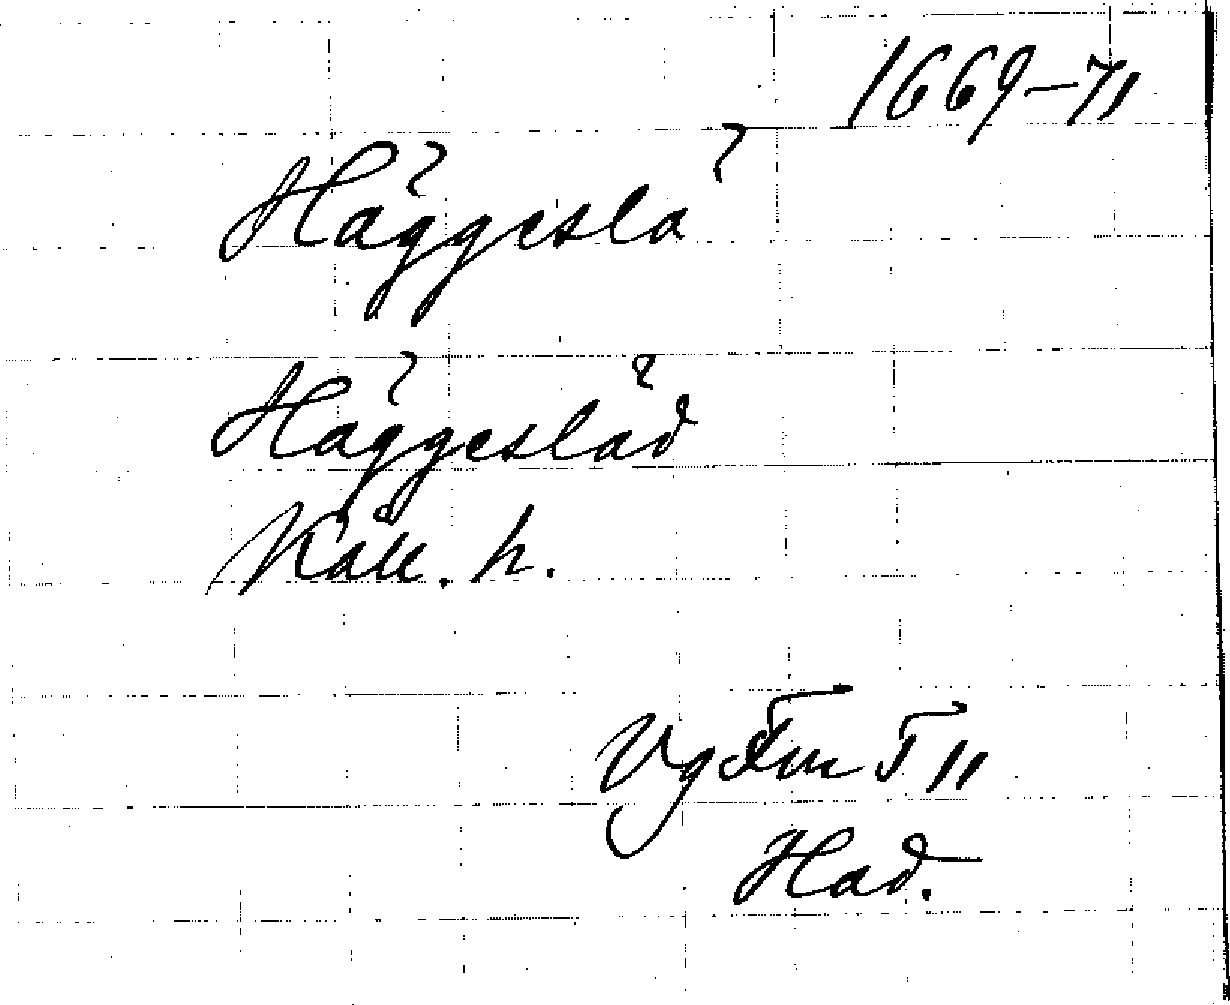 1669-71
Häggeslä
Häggesläd
Kåll. h.
VgFmT 11
Had.